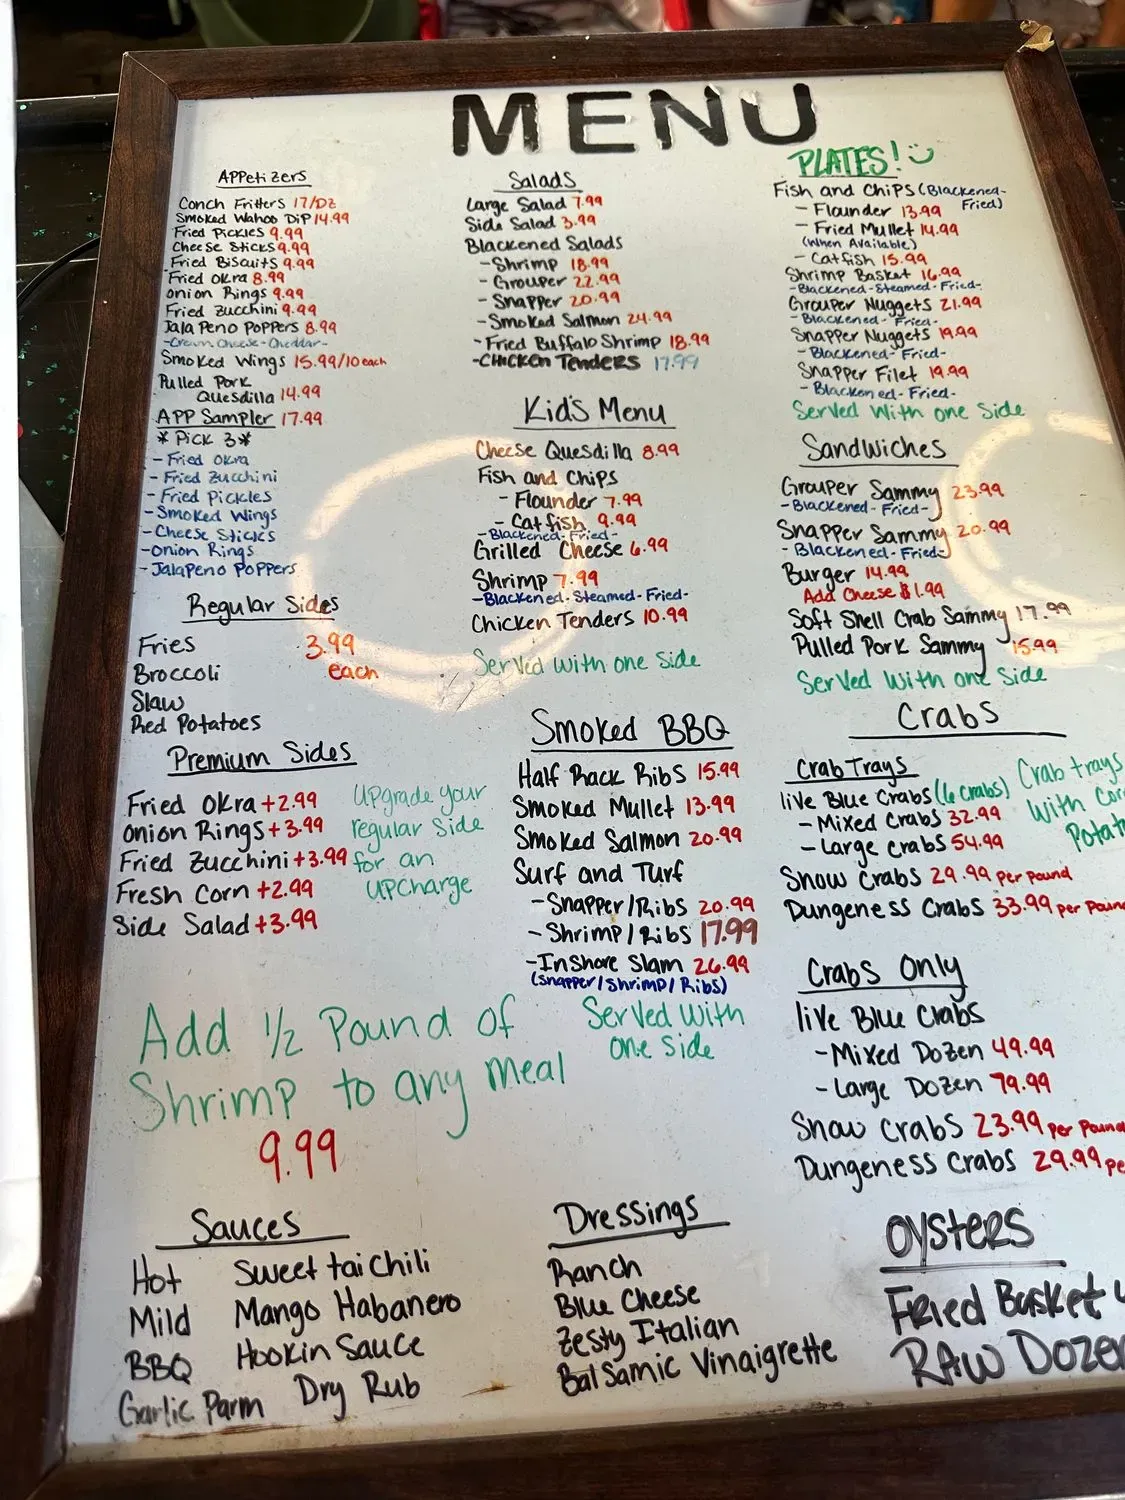 MENU
Appetizers
Conch Fritters 17/DZ
Smoked Wahoo Dip 14.99
Fried Pickles 9.99
Cheese Sticks 9.99
Fried Biscuits 9.99
Fried Okra 8.99
Onion Rings 9.99
Fried Zucchini 9.99
Jalapeno Poppers 8.99
-Cream Cheese-Cheddar-
Smoked Wings 15.99/10 each
Pulled Pork
Quesdilla 14.99
App Sampler 17.99
* Pick 3 *
- Fried Okra
- Fried Zucchini
- Fried Pickles
- Smoked Wings
- Cheese Sticks
- Onion Rings
- Jalapeno Poppers
Regular Sides
Fries 3.99
Broccoli each
Slaw
Red Potatoes
Premium Sides
Fried Okra +2.99
Onion Rings +3.99
Fried Zucchini +3.99
Fresh Corn +2.99
Side Salad +3.99
Upgrade your
regular side
for an
upcharge
Add 1/2 Pound of
Shrimp to any meal
9.99
Salads
Large Salad 7.99
Side Salad 3.99
Blackened Salads
- Shrimp 18.99
- Grouper 22.99
- Snapper 20.99
- Smoked Salmon 24.99
- Fried Buffalo Shrimp 18.99
- Chicken Tenders 17.99
Kid's Menu
Cheese Quesdilla 8.99
Fish and Chips
- Flounder 7.99
- Catfish 9.99
- Blackened- Fried-
Grilled Cheese 6.99
Shrimp 7.99
-Blackened- Steamed- Fried-
Chicken Tenders 10.99
Served with one side
Smoked BBQ
Half Rack Ribs 15.99
Smoked Mullet 13.99
Smoked Salmon 20.99
Surf and Turf
- Snapper/Ribs 20.99
- Shrimp/Ribs 17.99
- Inshore Slam 26.99
(Snapper/Shrimp/Ribs)
Served with
one side
PLATES!
Fish and Chips (Blackened-
Fried)
- Flounder 13.99
- Fried Mullet 14.99
(When Available)
- Catfish 15.99
Shrimp Basket 16.99
-Blackened-Steamed-Fried-
Grouper Nuggets 21.99
- Blackened- Fried-
Snapper Nuggets 19.99
- Blackened- Fried-
Snapper Filet 19.99
- Blackened- Fried-
Served With one side
Sandwiches
Grouper Sammy 23.99
- Blackened- Fried-
Snapper Sammy 20.99
- Blackened- Fried-
Burger 14.99
Add Cheese $1.99
Soft Shell Crab Sammy 17.99
Pulled Pork Sammy 15.99
Served with one side
Crabs
Crab Trays
live Blue Crabs (6 crabs)
- Mixed Crabs 32.99
- Large Crabs 54.99
Snow Crabs 29.99 per pound
Dungeness Crabs 33.99 per poun
Crab trays
with Cor
Potat
Crabs Only
live Blue Crabs
- Mixed Dozen 49.99
- Large Dozen 79.99
Snow Crabs 23.99 per poun
Dungeness Crabs 29.99 pe
Sauces
Hot
Mild
BBQ
Garlic Parm
Sweet tai Chili
Mango Habanero
Hookin Sauce
Dry Rub
Dressings
Ranch
Blue Cheese
Zesty Italian
Balsamic Vinaigrette
OYSTERS
Fried Basket
RAW Dozen